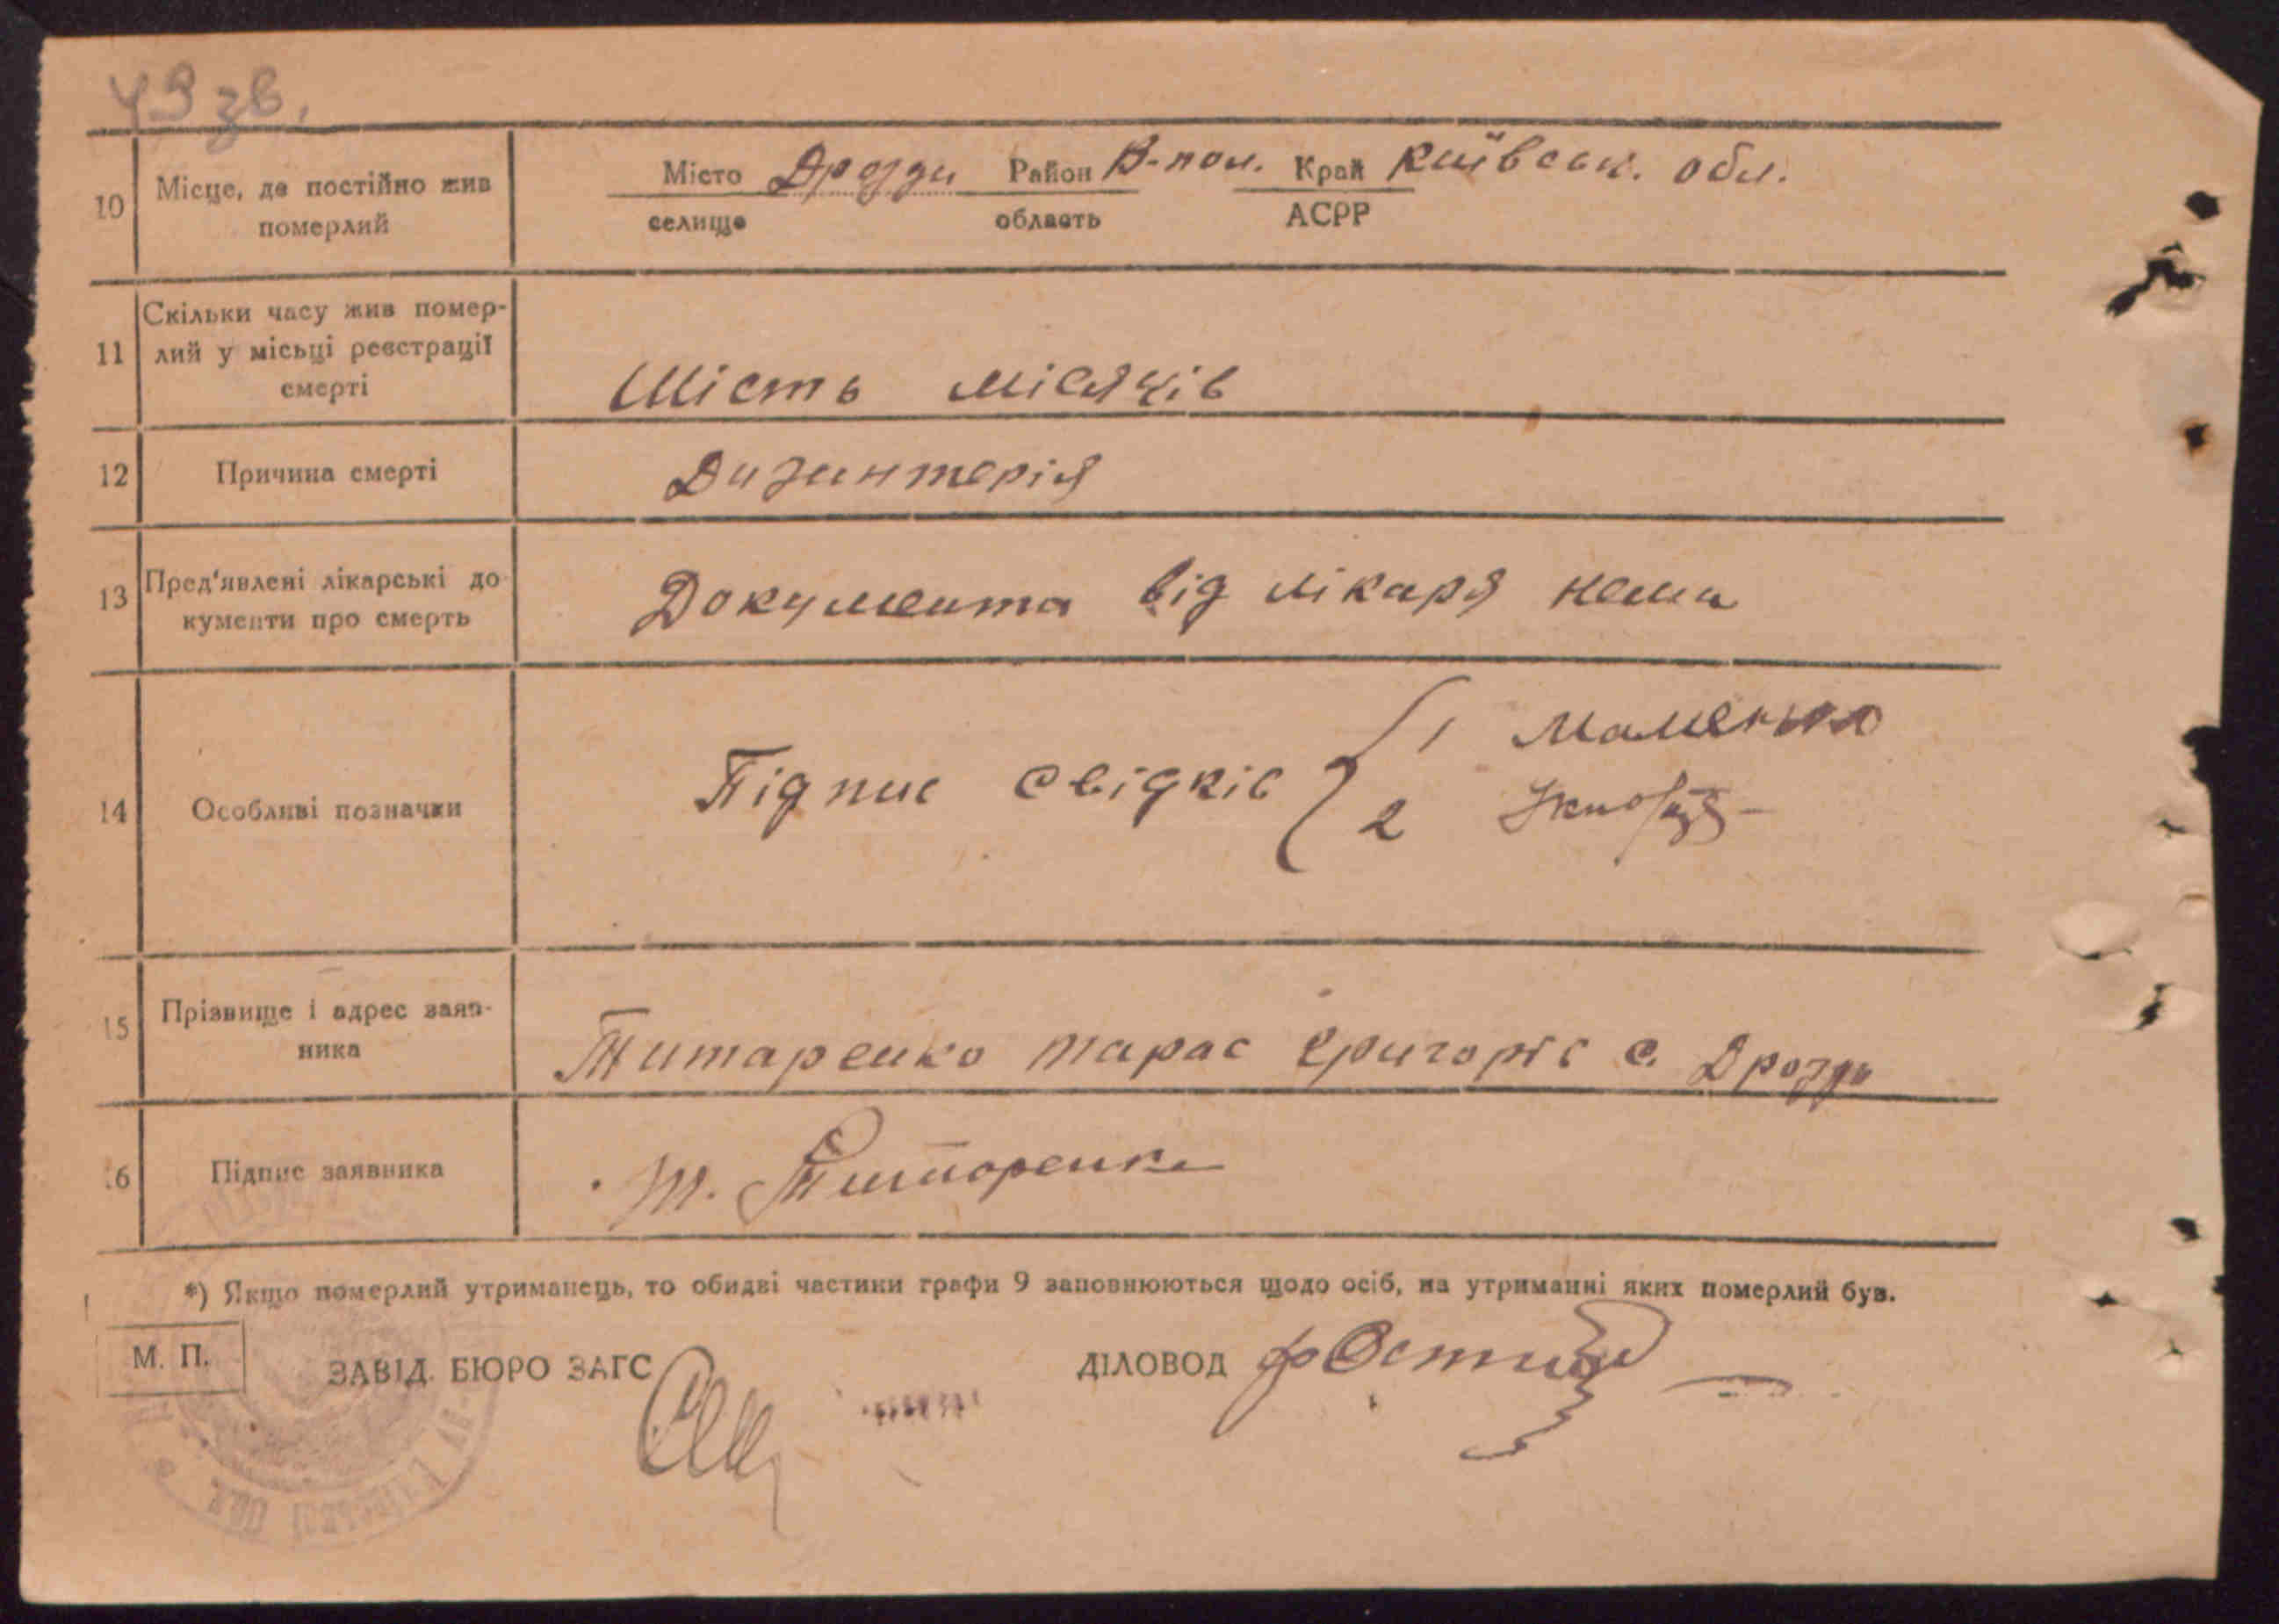 49 зв.
10 Місце, де постійно жив померлий
Місто Дрозди Район В-пол. Край Київськ. обл.
селище область АСРР
11 Скільки часу жив помер-
лий у місьці реєстрації
смерті
Шість місяців
12 Причина смерті Дизинтерія
13 Пред'явлені лікарські до
кументи про смерть
Документа від лікаря нема
14 Особливі позначки
Підпис свідків { 1
2
15 Прізвище і адрес заяв-
ника
Титаренко Тарас Григорів с. Дрозди
16 Підпис заявника Т. Титаренко
*) Якщо померлий утриманець, то обидві частини графи 9 заповнюються щодо осіб, на утриманні яких померлий був.
М. П. ЗАВІД. БЮРО ЗАГС ДІЛОВОД